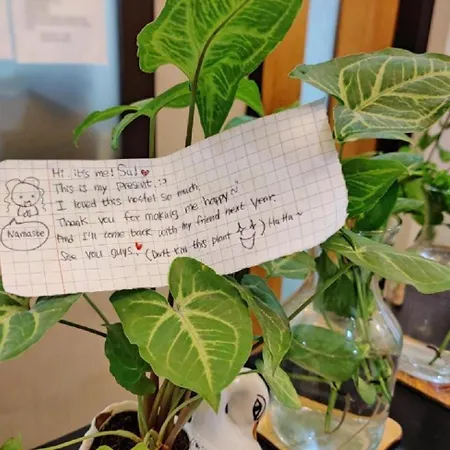 Hi it's me! Su!
This is my present. :)
I loved this hostel so much.
Thank you for making me happy~
And I'll come back with my friend next year.
See you guys. (Don't Kill this plant) HaHa~
Namaste